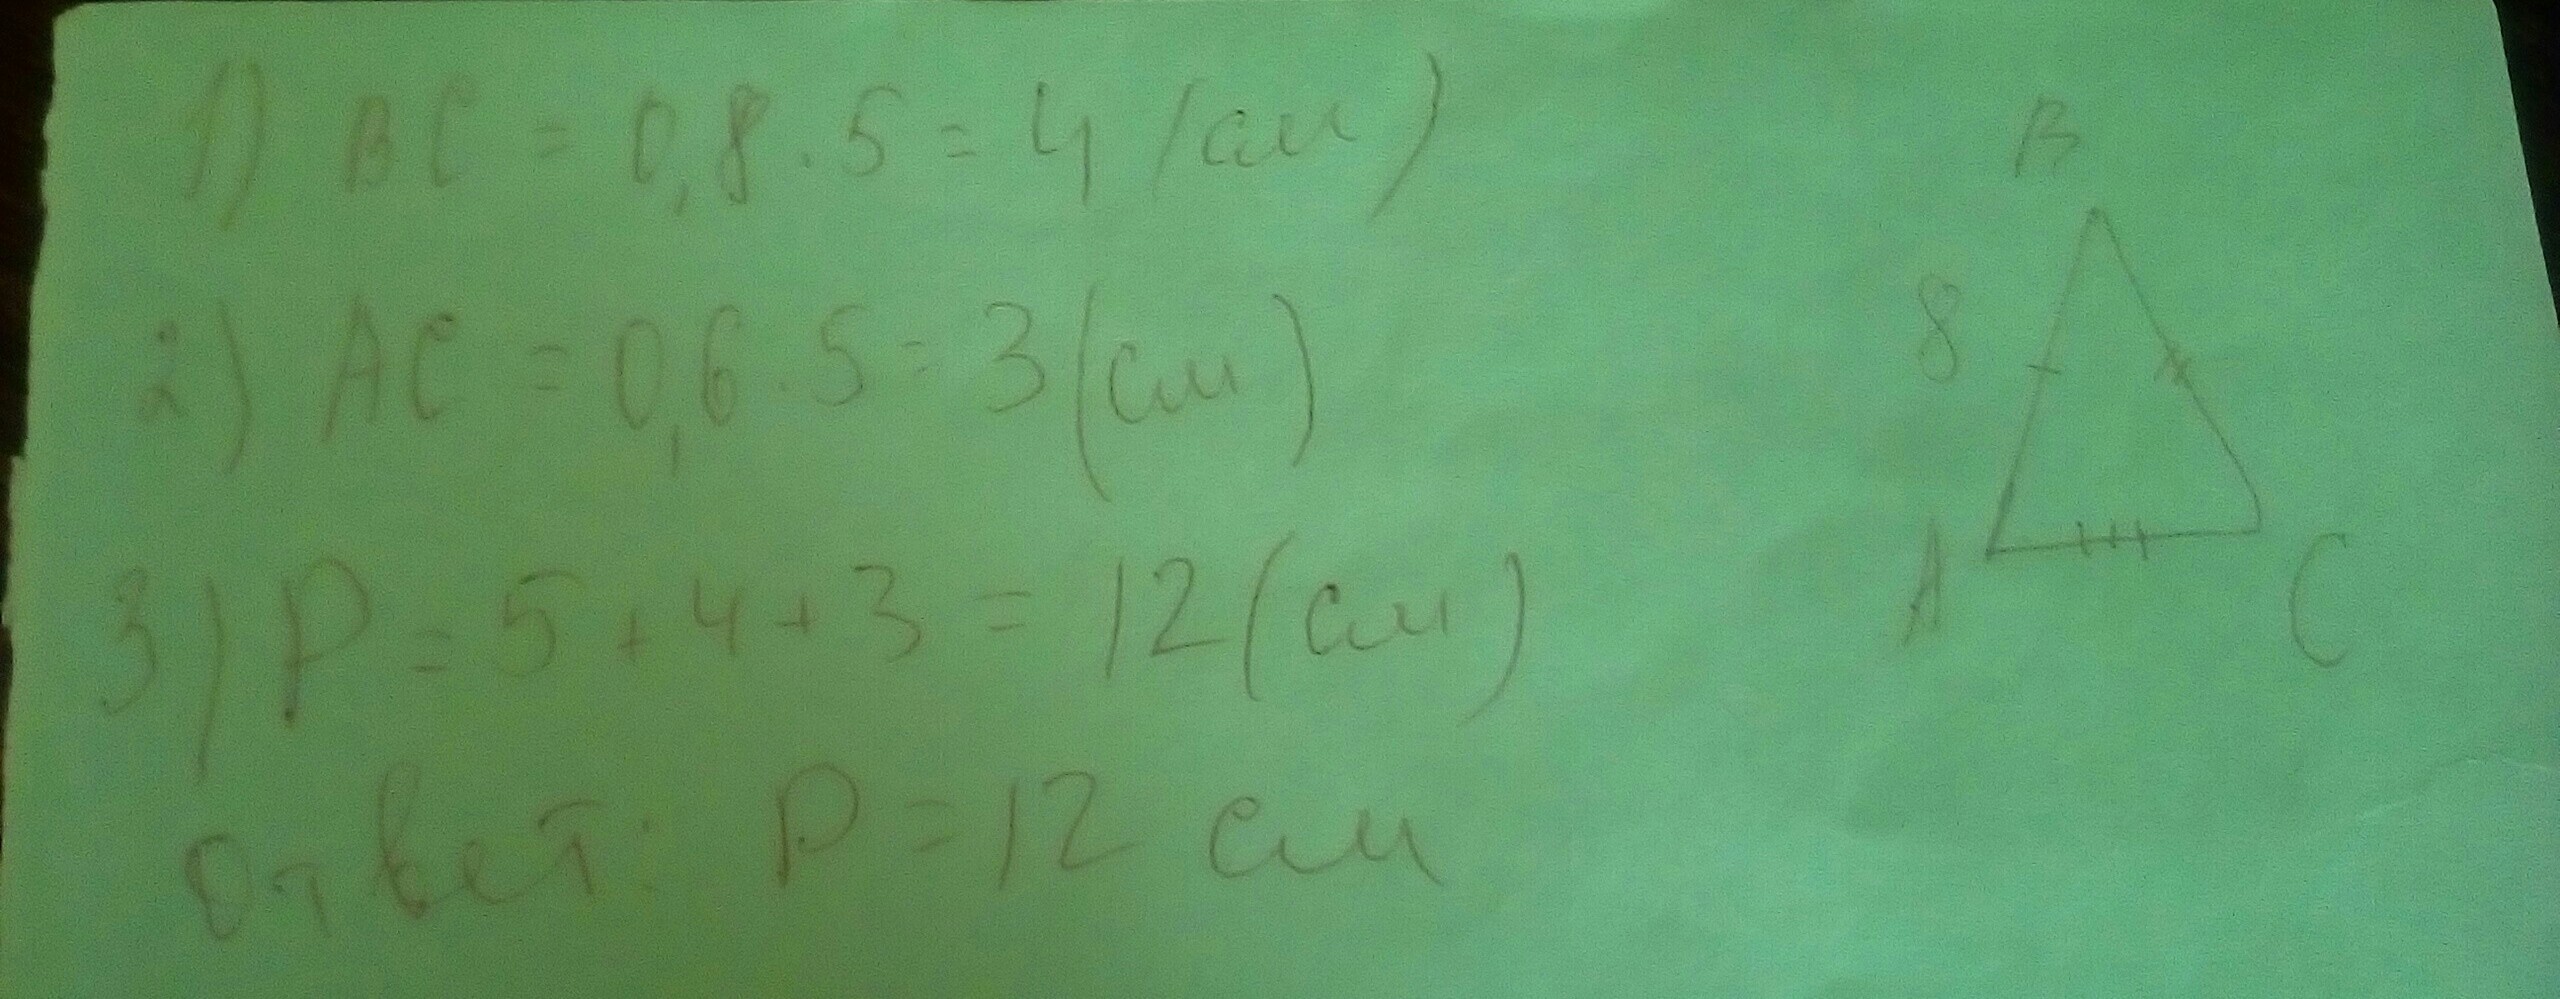 1) BC = 0,8 · 5 = 4 (см)
2) AC = 0,6 · 5 = 3 (см)
3) P = 5 + 4 + 3 = 12 (см)
Ответ: P = 12 см
B
8
A
C